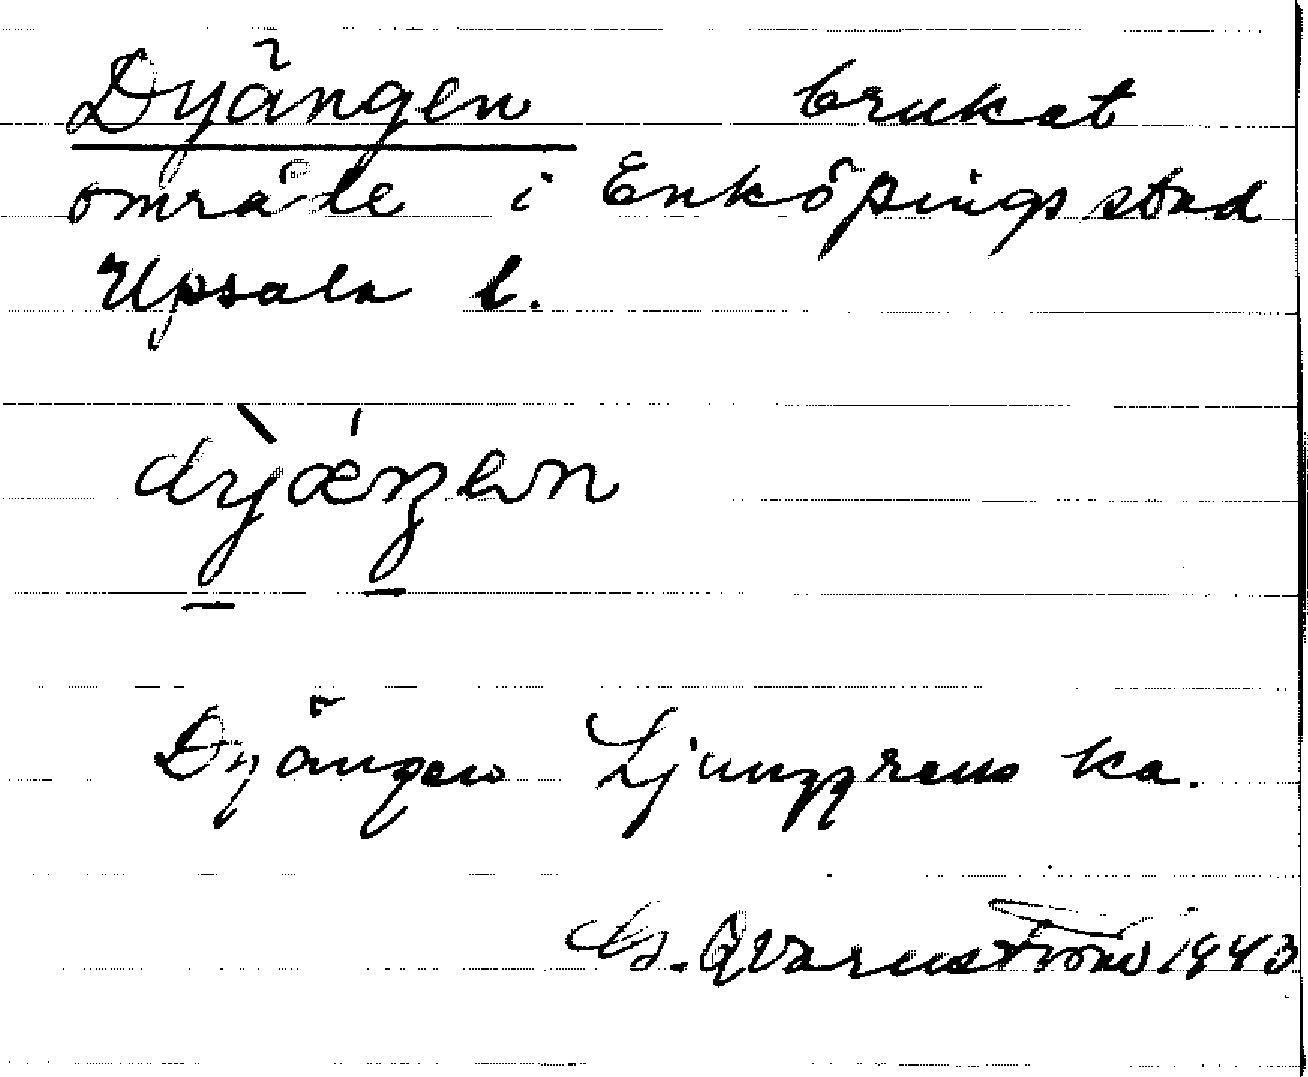 Dyängen brukat
område i Enköpings stad
Upsala l.
dỳ̠ǽŋ̠en
Dyängen Ljunggrens ka.
G. Qvarnström 1943